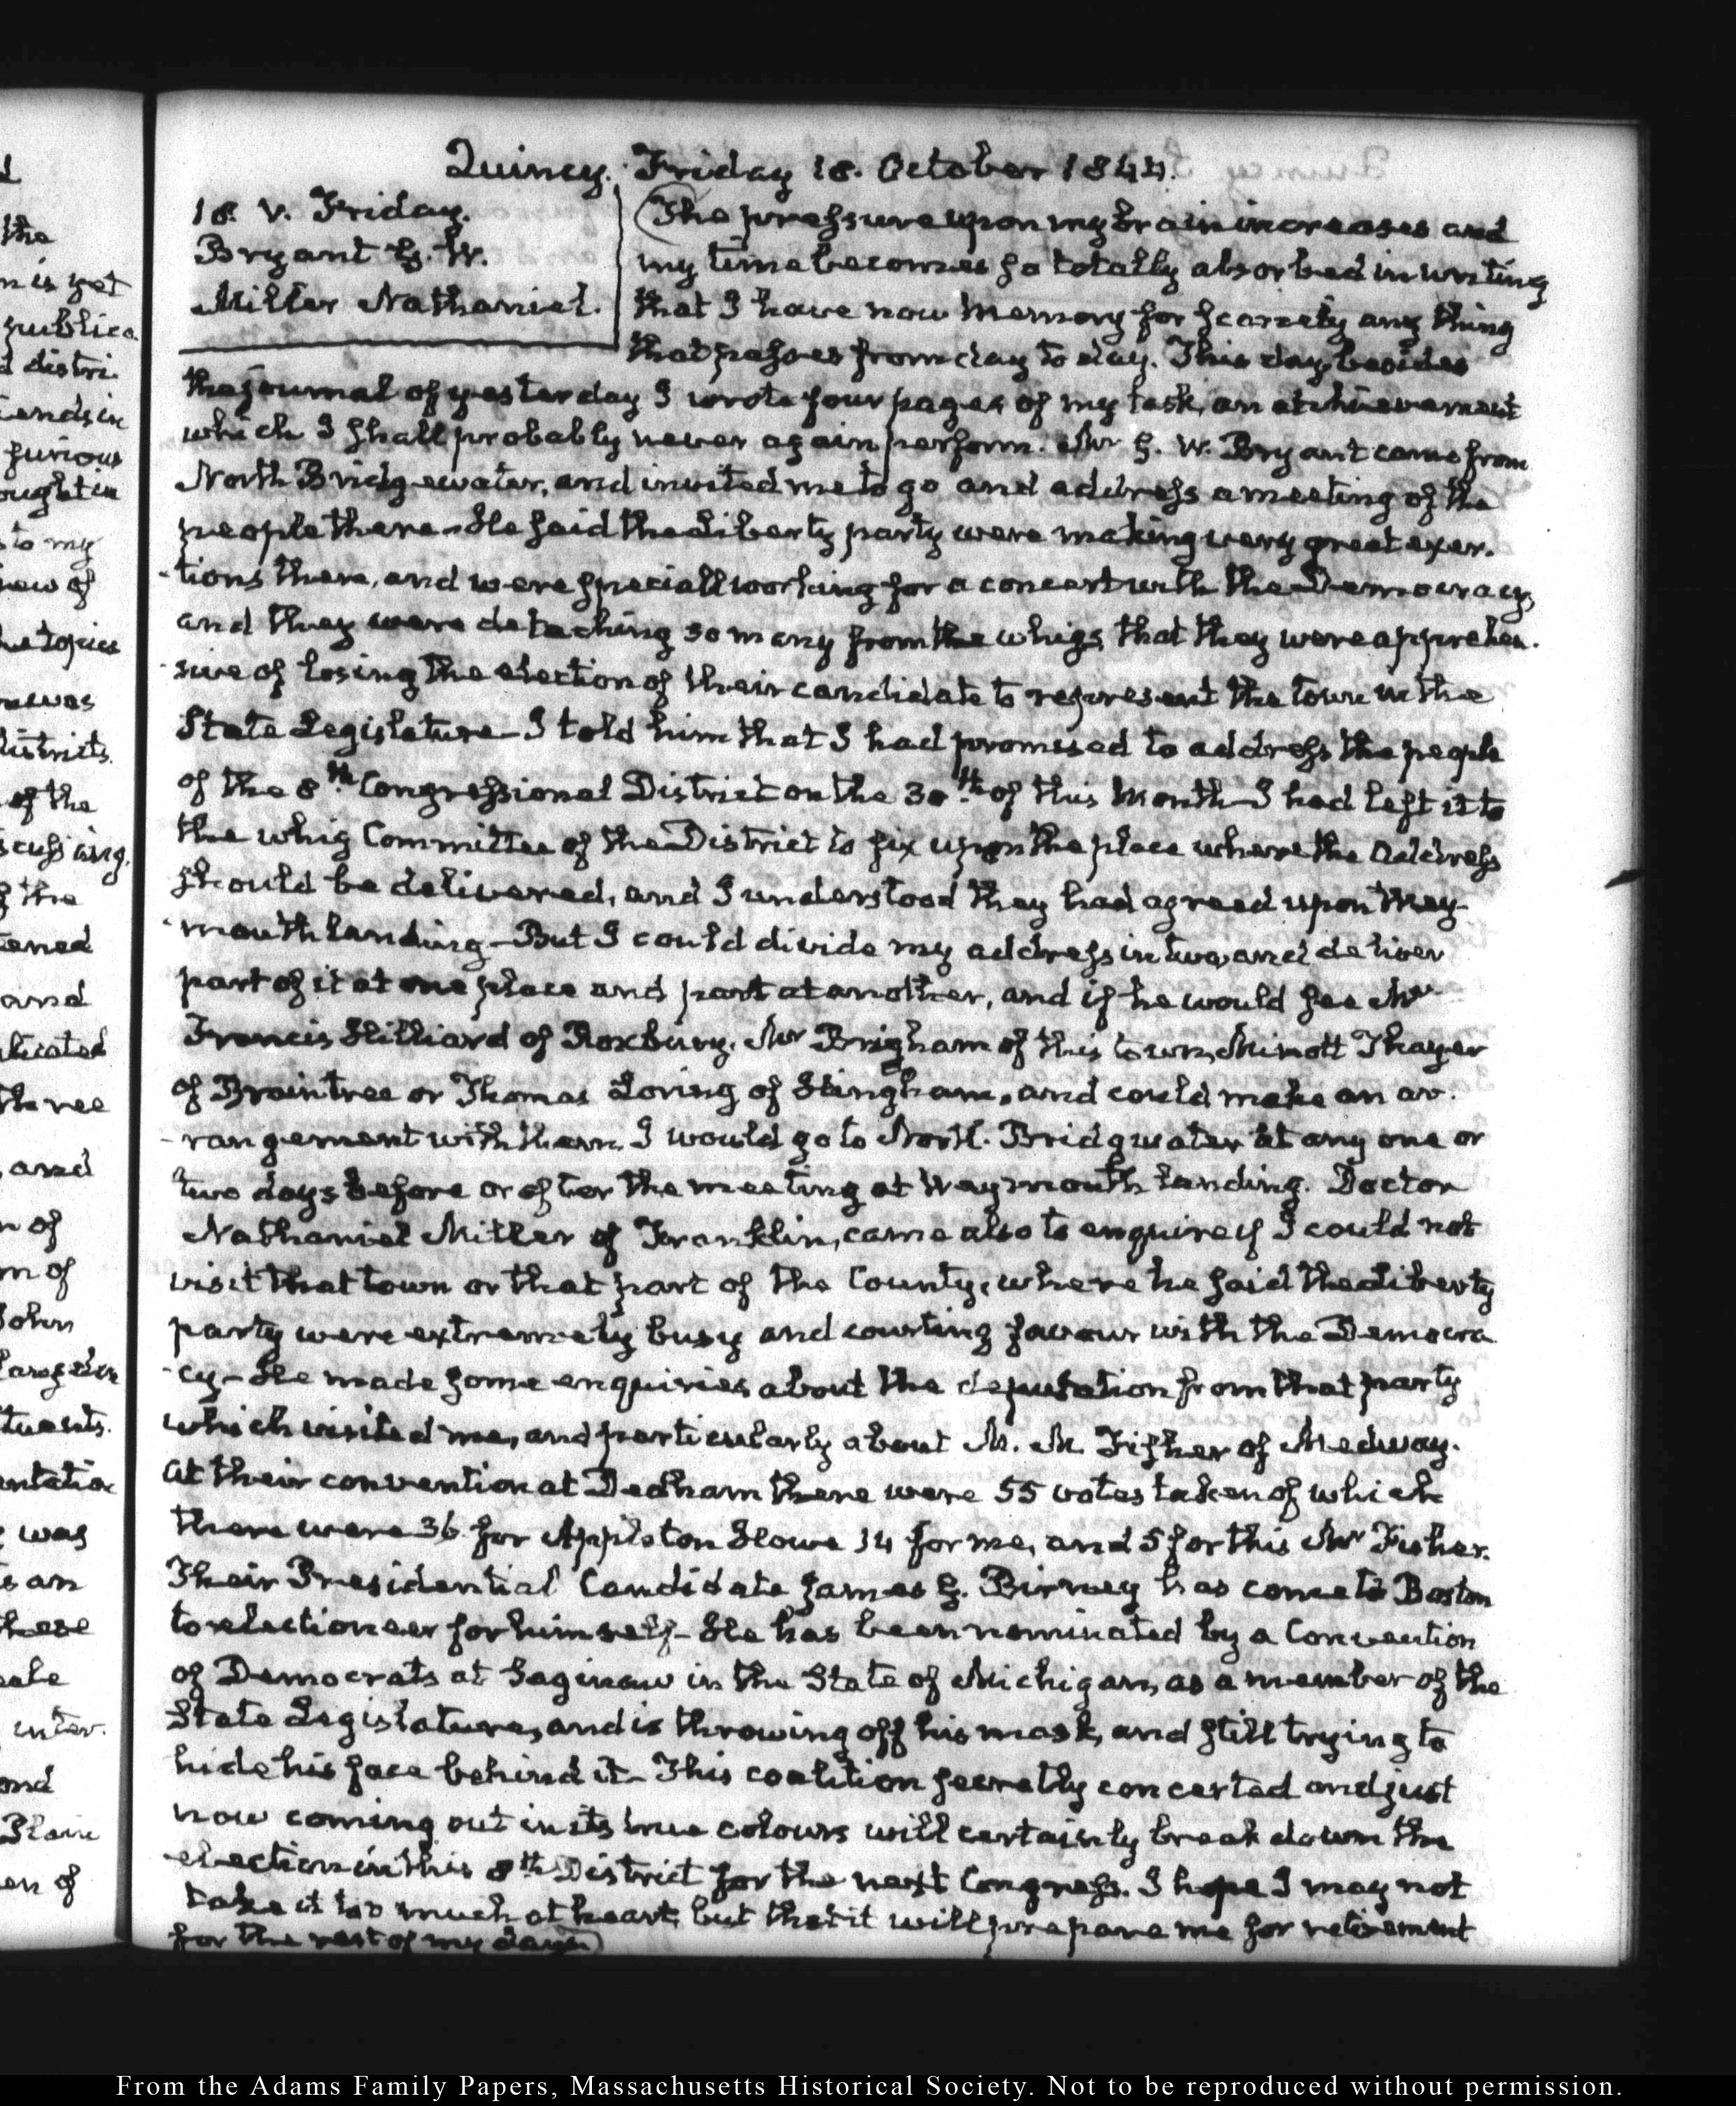 Quincy. Friday 18. October 1844.
18. V. Friday.
Bryant G. W.
Miller Nathaniel.
The pressure upon my brain increases and
my time becomes so totally absorbed in writing
that I have now memory for scarcely any thing
that passes from day to day. This day besides
the journal of yesterday I wrote four pages of my task, an atchievement
which I shall probably never again perform. Mr G. W. Bryant came from
North Bridgewater, and invited me to go and address a meeting of the
people there. He said the Liberty party were making very great exer-
-tions there, and were specially working for a concert with the Democracy,
and they were detaching so many from the whigs, that they were apprehen-
-sive of losing the election of their candidate to represent the town in the
State Legislature— I told him that I had promised to address the people
of the 8th. Congressional District on the 30th. of this Month— I had left it to
the whig Committee of the District to fix upon the place where the Address
should be delivered, and I understood they had agreed upon Wey-
-mouth landing— But I could divide my address in two, and deliver
part of it at one place and part at another, and if he would see Mr
Francis Hilliard of Roxbury, Mr Brigham of this town, Minott Thayer
of Braintree or Thomas Loring of Hingham, and could make an ar-
-rangement with them, I would go to North Bridgwater at any one or
two days before or after the meeting at Weymouth landing. Doctor
Nathaniel Miller of Franklin, came also to enquire if I could not
visit that town or that part of the County, where he said the Liberty
party were extremely busy and courting favour with the Democra-
-cy— He made some enquiries about the deputation from that party
which visited me, and particularly about M. M. Fisher of Medway.
At their convention at Dedham there were 55 votes taken of which
there were 36 for Appleton Howe 14 for me, and 5 for this Mr Fisher.
Their Presidential Candidate James G. Birney has come to Boston
to electioneer for himself— He has been nominated by a Convention
of Democrats at Saginaw in the State of Michigan, as a member of the
State Legislature, and is throwing off his mask, and still trying to
hide his face behind it— This coalition secretly concerted and just
now coming out in its true colours will certainly break down the
election in this 8th District for the next Congress. I hope I may not
take it too much at heart, but that it will prepare me for retirement
for the rest of my days
From the Adams Family Papers, Massachusetts Historical Society. Not to be reproduced without permission.